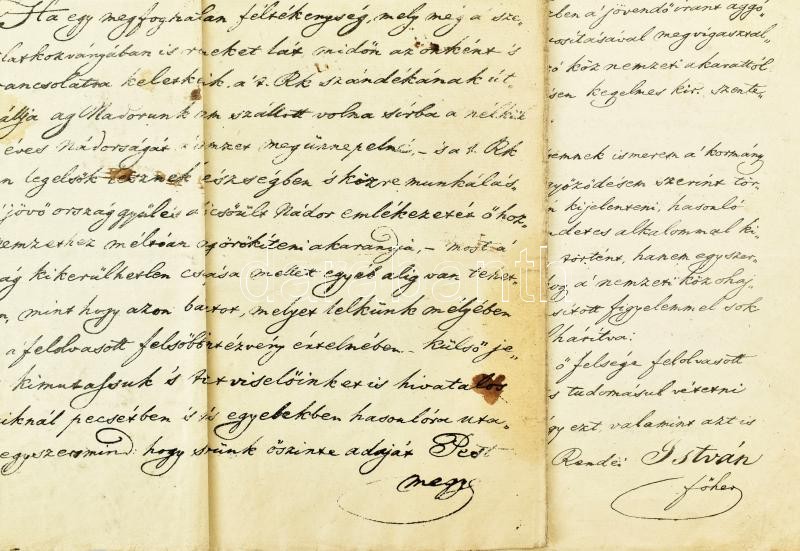 Ha egy megfoghatlan féltékenység, mely még a sze„
latkozványában is rémeket lát, midőn az önként is
rancsolatra keletkeik, a t. Rk szándékának út„
állja ag Nádorunk nem szállott volna sírba a nélkül
éves Nádorságát a nemzet megünnepelné, – is a t. Rk
n legelsők lesznek egészségben s közre munkálás„
jövő országgyülés dicsőült Nádor emlékezetét ő hoz„
emzethez méltóan örökíteni akarandja, – most a
ág kikerülhetlen csapása mellett egyéb alig van tehet„
n, mint hogy azon bútort, melyet lelkünk mélyében
felolvasott felsőbb intézvény értelmében – külső je„
kimutassuk és tisztviselőinket is hivatalos
iknál pecsétben is és egyebekben hasonlóra uta„
egyszersmind hogy szünk őszinte adóját Pest
megye
ben a jövendő iránt aggó„
ositásával megvigasztal„
ó köz nemzeti akarattól
sen kegelmes kir. szente„
temnek ismerem a kormány
győződésem szerint tör„
n kijelenteni, hasonló
nderes alkalommal ki„
történt, hanem egyszer„
hogy a nemzeti közohaj„
sitott figyelemmel sok
lhárítva:
ő felsége felolvasott
s tudomásul vétetni
gy ezt, valamint azt is
Rendei István
főher
darabanth